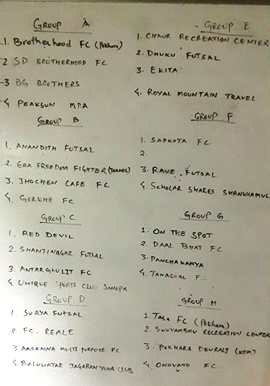 GROUP A
1. Brotherhood FC (Pokhara)
2 SD BROTHERHOOD FC
3 BG BROTHERS
4 PEAKSUN MPA
GROUP B
1. ANANDITH FUTSAL
2. ERA FREEDOM FIGHTER
3. JHOCHEN CAFE FC
4 GORKHE FC
GROUP C
1. RED DEVIL
2. SHANTINAGAR FUTSAL
3. ANTARGKULIT FC
4 UNIQUE SPORTS CLUB SANEPA
GROUP D
1 SURYA FUTSAL
2. FC. REALE
3. MULTI PURPOSE FC
4. BALUWATAR JAGARAN YUWA CLUB
GROUP E
1. CHAUR RECREATION CENTER
2. DHUKU FUTSAL
3. EKITA
4. ROYAL MOUNTAIN TRAVEL
GROUP F
1. SAPKOTA FC
2.
3. RAVE FUTSAL
4. SCHOLAR SHARES SHANKHAMUL
GROUP G
1. ON THE SPOT
2. DAAL BHAT FC
3. PANCHAKANYA
4.
GROUP H
1. FC (Pokhara)
2. SWYAMBHU RECREATION CENTER
3. POKHARA DEURALI (KTM)
4. ONOVATO FC